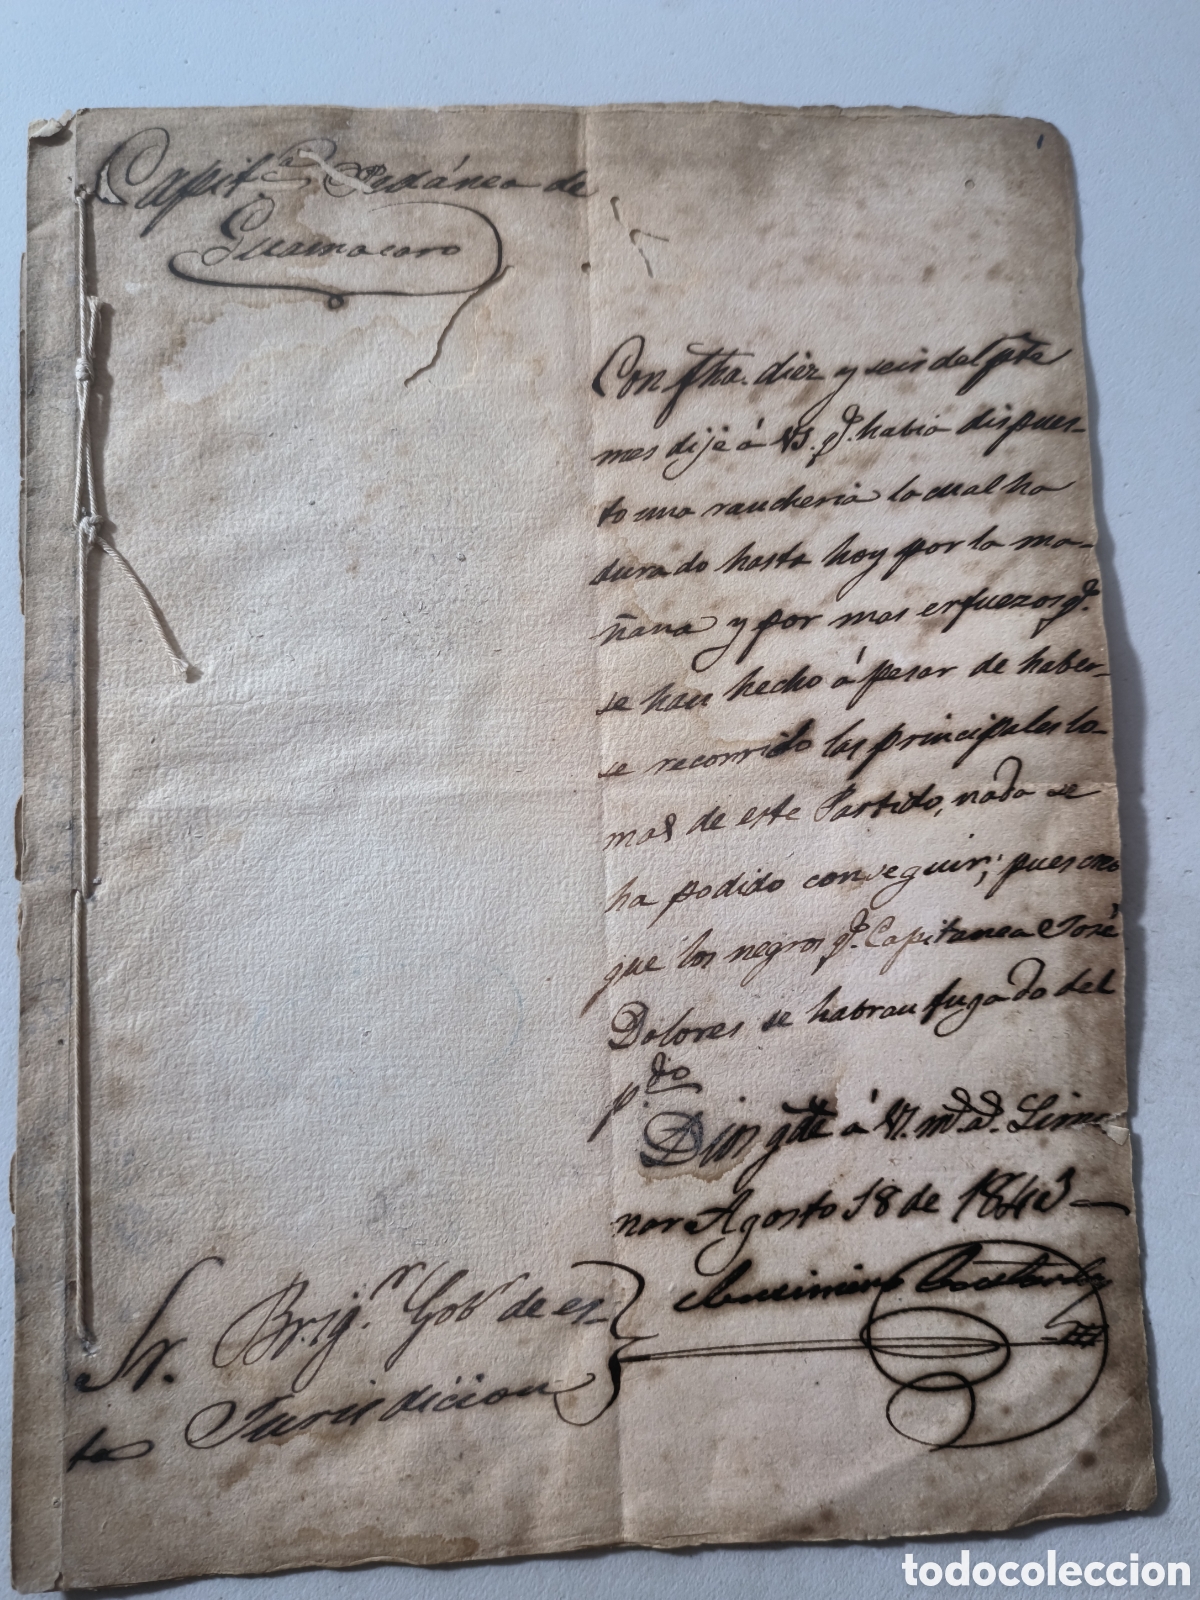 Capit.ª Pedánea de
Guamacaro
Con fha. diez y seis del pte
mes dije á VS. qᵉ. habia dispues-
to una rancheria la cual ha
durado hasta hoy por la ma-
ñana y por mas erfuezos qᵉ.
se han hecho á pesar de haber-
se recorrido las principales lo-
mas de este Partido, nada se
ha podido conseguir; pues creo
que los negros qᵉ. Capitanea José
Dolores se habran fugado del
p.ᵈᵒ
Dios gde á V. mˢ. aˢ. Limo-
nar Agosto 18 de 1843
Sr. Brigʳ. Gobʳ de es-
ta Jurisdicion
todocoleccion